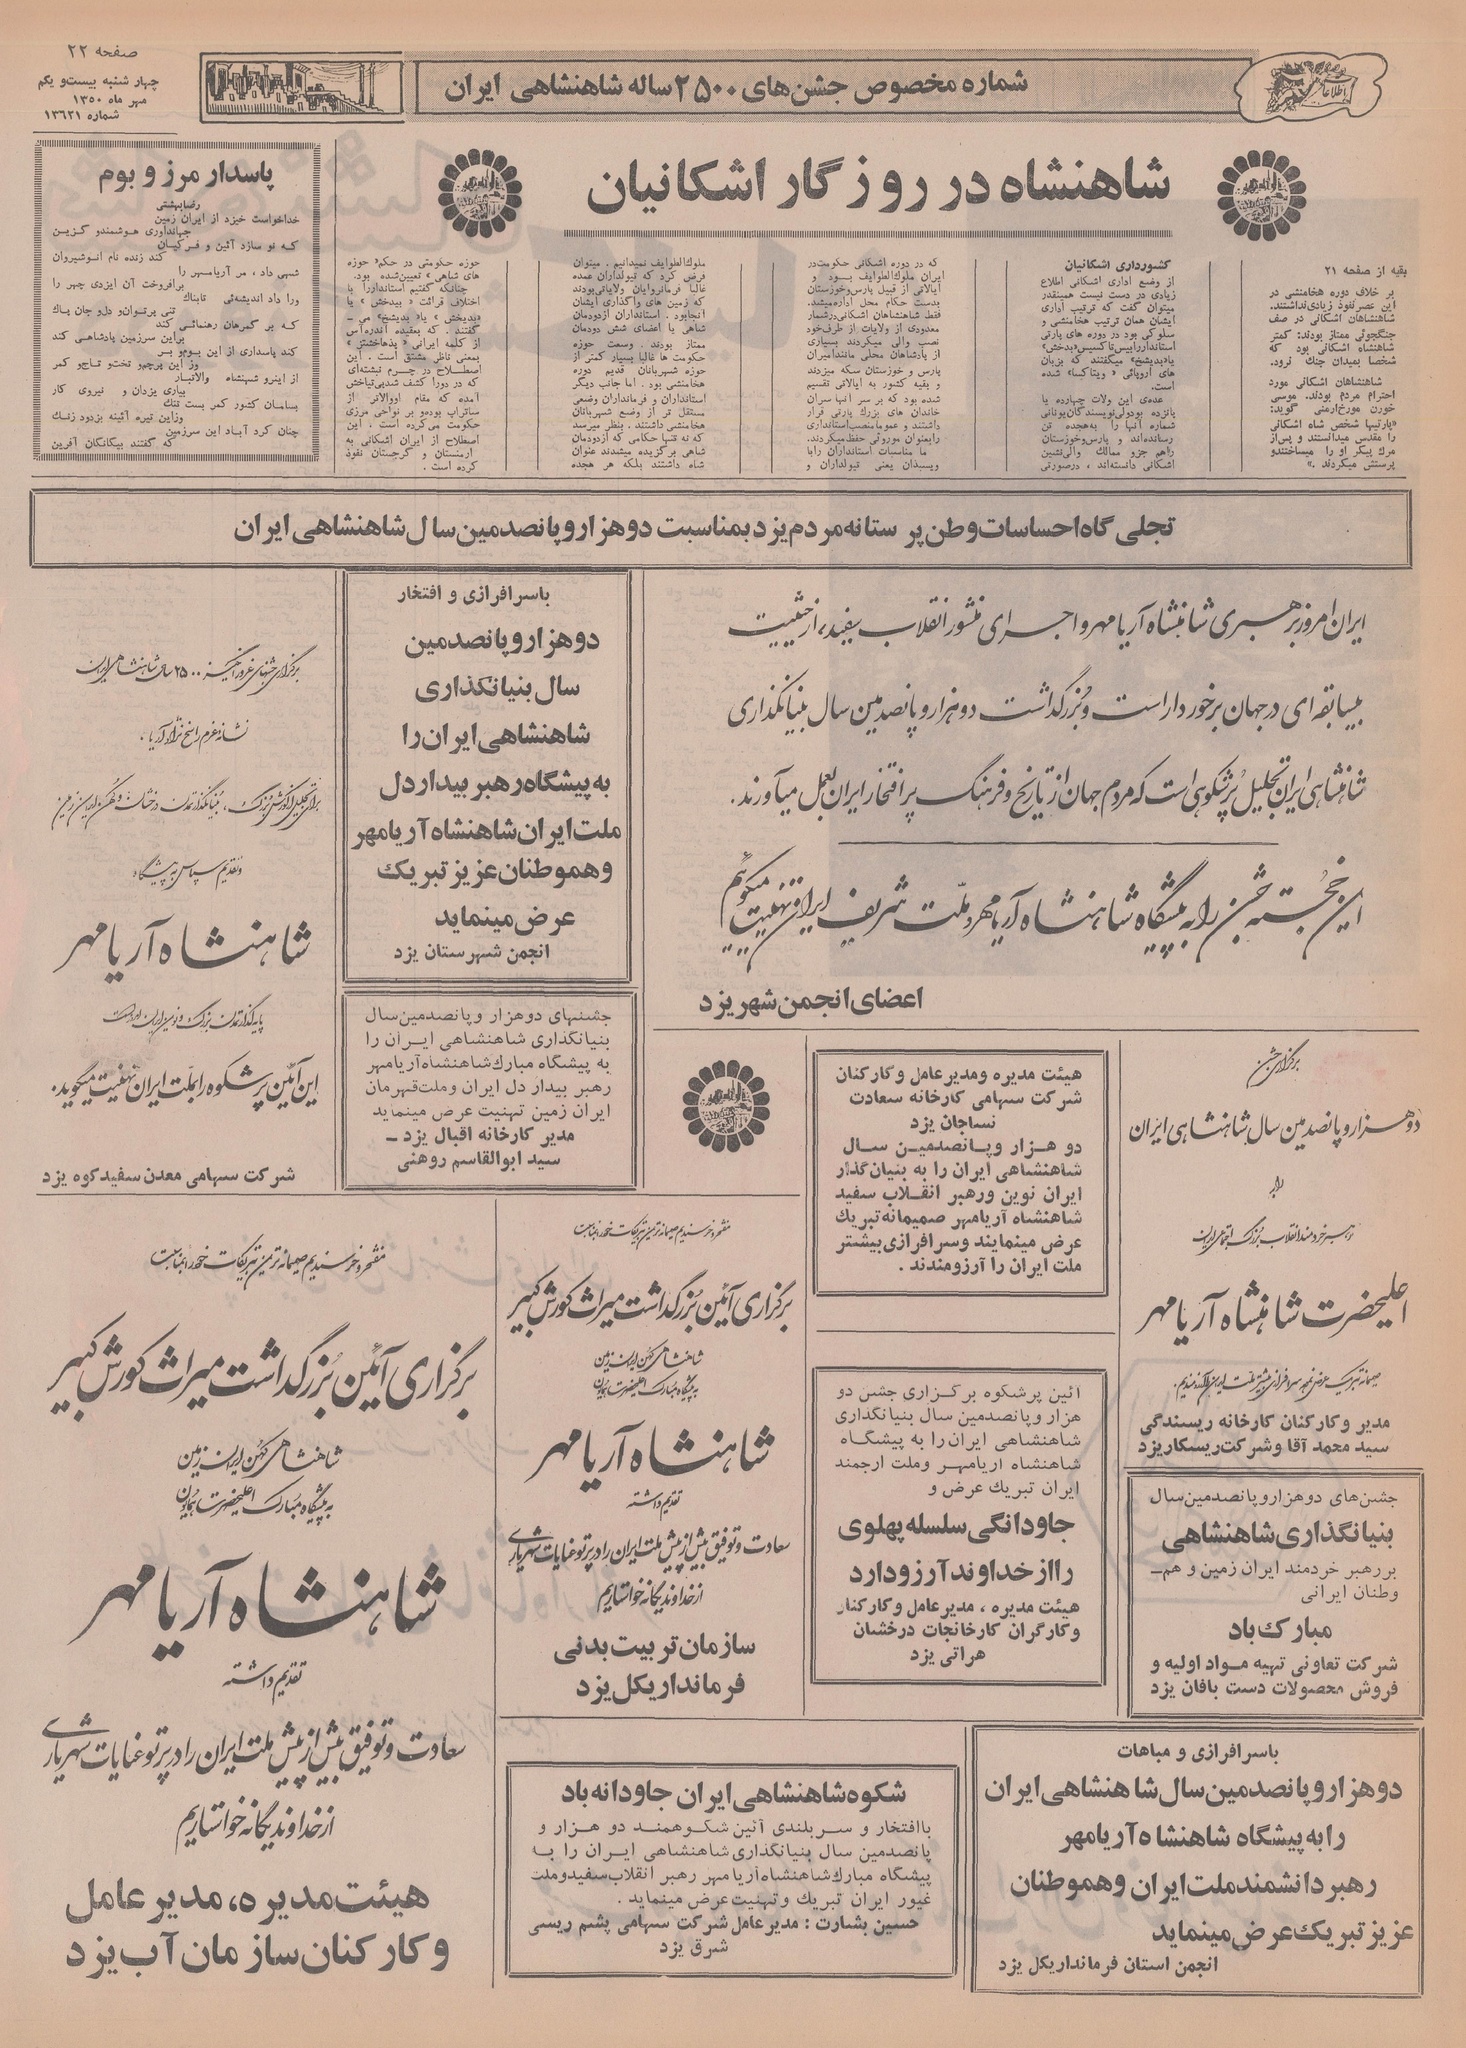 صفحه ۲۲
چهار شنبه بیست و یکم
مهر ماه ۱۳۵۰
شماره ۱۳۶۲۱
شماره مخصوص جشن‌های ۲۵۰۰ ساله شاهنشاهی ایران
اطلاعات
شاهنشاه در روزگار اشکانیان
بقیه از صفحه ۲۱
بر خلاف دوره هخامنشی در
این عصر نفوذ زیادی نداشتند.
شاهنشاهان اشکانی در صف
جنگجوئی ممتاز بودند: کمتر
شاهنشاه اشکانی بود که
شخصا بمیدان جنگ نرود.
شاهنشاهان اشکانی مورد
احترام مردم بودند. موسی
خورن مورخ ارمنی گوید:
«پارتیها شخص شاه اشکانی
را مقدس میدانستند و پس از
مرگ پیکر او را میساختند و
پرستش میکردند.»
کشورداری اشکانیان
از وضع اداری اشکانی اطلاع
زیادی در دست نیست همینقدر
میتوان گفت که ترتیب اداری
ایشان همان ترتیب هخامنشی و
سلوکی بود در دوره های پارتی
استاندار را بیستاکسیس «بدخش»
یا «بدیشخ» میگفتند که بزبان
های اروپائی «ویتاکسا» شده
است.
عده‌ی این ولات چهارده یا
پانزده بود ولی نویسندگان یونانی
شماره آنها را به هجده تن
رسانده‌اند و پارس و خوزستان
را هم جزو ممالک والی نشین
اشکانی دانسته‌اند، در صورتی
که در دوره اشکانی حکومت در
ایران ملوک الطوایف بود و
ایالاتی از قبیل پارس و خوزستان
بدست حکام محل اداره میشد.
فقط شاهنشاهان اشکانی در شمار
معدودی از ولایات از طرف خود
نصب والی میکردند بسیاری
از پادشاهان محلی مانند امیران
پارس و خوزستان سکه میزدند
و بقیه کشور به ایالاتی تقسیم
شده بود که بر سر آنها سران
خاندان های بزرگ پارتی قرار
داشتند و عموما منصب استانداری
را بعنوان موروثی حفظ میکردند.
ما مناسبات استانداران را با
ویسبذان یعنی تیولداران و
ملوک الطوایف نمیدانیم. میتوان
فرض کرد که تیولداران عمده
غالبا فرمانروایان ولایاتی بودند
که زمین های واگذاری ایشان
آنجا بود. استانداران از دودمان
شاهی با اعضای شش دودمان
ممتاز بودند. وسعت حوزه
حکومت ها غالبا بسیار کمتر از
حوزه شهربانان قدیم دوره
هخامنشی بود. اما جانب دیگر
استانداران و فرمانداران وضعی
مستقل تر از وضع شهربانان
هخامنشی داشتند. بنظر میرسد
که نه تنها حکامی که از دودمان
شاهی برگزیده میشدند عنوان
شاه داشتند بلکه هر هجده
حوزه حکومتی در حکم «حوزه
های شاهی» تعیین شده بود.
چنانکه گفتیم استاندار را با
اختلاف قرائت «بیدخش» یا
«بدیخش» یا «بدیشخ» می‌-
گفتند. که بعقیده آندره‌آس
از کلمه ایرانی «پذاخشتن»
بمعنی ناظر مشتق است. این
اصطلاح در چرم نبشته‌ای
که در دورا کشف شد بی‌تیاخش
آمده که مقام او والاتر از
ساتراپ بوده و بر نواحی مرزی
حکومت می‌کرده است. این
اصطلاح از ایران اشکانی به
ارمنستان و گرجستان نفوذ
کرده است.
پاسدار مرز و بوم
رضا بهشتی
خداخواست خیزد از ایران زمین
جهانداوری هوشمند و گزین
که نو سازد آئین و فر کیان
کند زنده نام انوشیروان
شهی داد، مر آریامهر را
برافروخت آن ایزدی چهر را
ورا داد اندیشه‌ئی تابناک
تنی پر توان و دل و جان پاک
که بر گمرهان رهنمائی کند
بر این سرزمین پادشاهی کند
کند پاسداری از این بوم و بر
وز این پرچم و تخت و تاج و کمر
از اینرو شهنشاه والاتبار
بیاری یزدان و نیروی کار
بسامان کشور کمر بست تنگ
وز این تیره آئینه بزدود زنگ
چنان کرد آباد این سرزمین
که گفتند بیگانگان آفرین
تجلی گاه احساسات وطن پرستانه مردم یزد بمناسبت دو هزار و پانصدمین سال شاهنشاهی ایران
ایران امروز برهبری شاهنشاه آریامهر و اجرای منشور انقلاب سفید، از حیثیت
بیسابقه ای در جهان برخوردار است و بزرگداشت دو هزار و پانصدمین سال بنیانگذاری
شاهنشاهی ایران تجلیل پرشکوهی است که مردم جهان از تاریخ و فرهنگ پر افتخار ایران بعمل میآورند.
این خجسته جشن را به پیشگاه شاهنشاه آریامهر و ملت شریف ایران تهنیت میگوئیم
اعضای انجمن شهر یزد
باسرافرازی و افتخار
دو هزار و پانصدمین
سال بنیانگذاری
شاهنشاهی ایران را
به پیشگاه رهبر بیدار دل
ملت ایران شاهنشاه آریامهر
و هموطنان عزیز تبریک
عرض مینماید
انجمن شهرستان یزد
برگزاری جشنهای غرورانگیز ۲۵۰۰ ساله شاهنشاهی ایران
نشانه عزم راسخ نژاد آریا،
برای تجلیل از کورش بزرگ، بنیانگذار تمدن درخشان و کهن ایران زمین
و تقدیم سپاس به پیشگاه
شاهنشاه آریامهر
پایه گذار تمدن بزرگ و نوین ایران است
این آئین پر شکوه را بملت ایران تهنیت میگوید.
شرکت سهامی معدن سفید کوه یزد
جشنهای دو هزار و پانصدمین سال
بنیانگذاری شاهنشاهی ایران را
به پیشگاه مبارک شاهنشاه آریامهر
رهبر بیدار دل ایران و ملت قهرمان
ایران زمین تهنیت عرض مینماید
مدیر کارخانه اقبال یزد -
سید ابوالقاسم روهنی
هیئت مدیره و مدیر عامل و کارکنان
شرکت سهامی کارخانه سعادت
نساجان یزد
دو هزار و پانصدمین سال
شاهنشاهی ایران را به بنیان گذار
ایران نوین و رهبر انقلاب سفید
شاهنشاه آریامهر صمیمانه تبریک
عرض مینمایند و سرافرازی بیشتر
ملت ایران را آرزومندند.
برگزاری جشن
دو هزار و پانصدمین سال شاهنشاهی ایران
را به
رهبر خردمند انقلاب بزرگ اجتماعی ایران
اعلیحضرت شاهنشاه آریامهر
صمیمانه تبریک عرض نموده سرافرازی بیشتر ملت ایران را آرزومندیم.
مدیر و کارکنان کارخانه ریسندگی
سید محمد آقا و شرکت ریسکار یزد
آئین پرشکوه برگزاری جشن دو
هزار و پانصدمین سال بنیانگذاری
شاهنشاهی ایران را به پیشگاه
شاهنشاه آریامهر و ملت ارجمند
ایران تبریک عرض و
جاودانگی سلسله پهلوی
را از خداوند آرزو دارد
هیئت مدیره، مدیر عامل و کارکنان
و کارگران کارخانجات درخشان
هراتی یزد
جشن‌های دو هزار و پانصدمین سال
بنیانگذاری شاهنشاهی
بر رهبر خردمند ایران زمین و هم-
وطنان ایرانی
مبارک باد
شرکت تعاونی تهیه مواد اولیه و
فروش محصولات دست بافان یزد
مفتخر و خرسندیم صمیمانه ترین تبریکات خود را بمناسبت
برگزاری آئین بزرگداشت میراث کورش کبیر
شاهنشاهی کهن ایران زمین
به پیشگاه مبارک اعلیحضرت همایون
شاهنشاه آریامهر
تقدیم داشته
سعادت و توفیق بیش از پیش ملت ایران را در پرتو عنایات شهریاری
از خداوند یگانه خواستاریم
سازمان تربیت بدنی
فرمانداریکل یزد
مفتخر و خرسندیم صمیمانه ترین تبریکات خود را بمناسبت
برگزاری آئین بزرگداشت میراث کورش کبیر
شاهنشاهی کهن ایران زمین
به پیشگاه مبارک اعلیحضرت همایون
شاهنشاه آریامهر
تقدیم داشته
سعادت و توفیق بیش از پیش ملت ایران را در پرتو عنایات شهریاری
از خداوند یگانه خواستاریم
هیئت مدیره، مدیر عامل
و کارکنان سازمان آب یزد
باسرافرازی و مباهات
دو هزار و پانصدمین سال شاهنشاهی ایران
را به پیشگاه شاهنشاه آریامهر
رهبر دانشمند ملت ایران و هموطنان
عزیز تبریک عرض مینماید
انجمن استان فرمانداریکل یزد
شکوه شاهنشاهی ایران جاودانه باد
با افتخار و سربلندی آئین شکوهمند دو هزار و
پانصدمین سال بنیانگذاری شاهنشاهی ایران را به
پیشگاه مبارک شاهنشاه آریامهر رهبر انقلاب سفید و ملت
غیور ایران تبریک و تهنیت عرض مینماید.
حسین بشارت: مدیر عامل شرکت سهامی پشم ریسی
شرق یزد